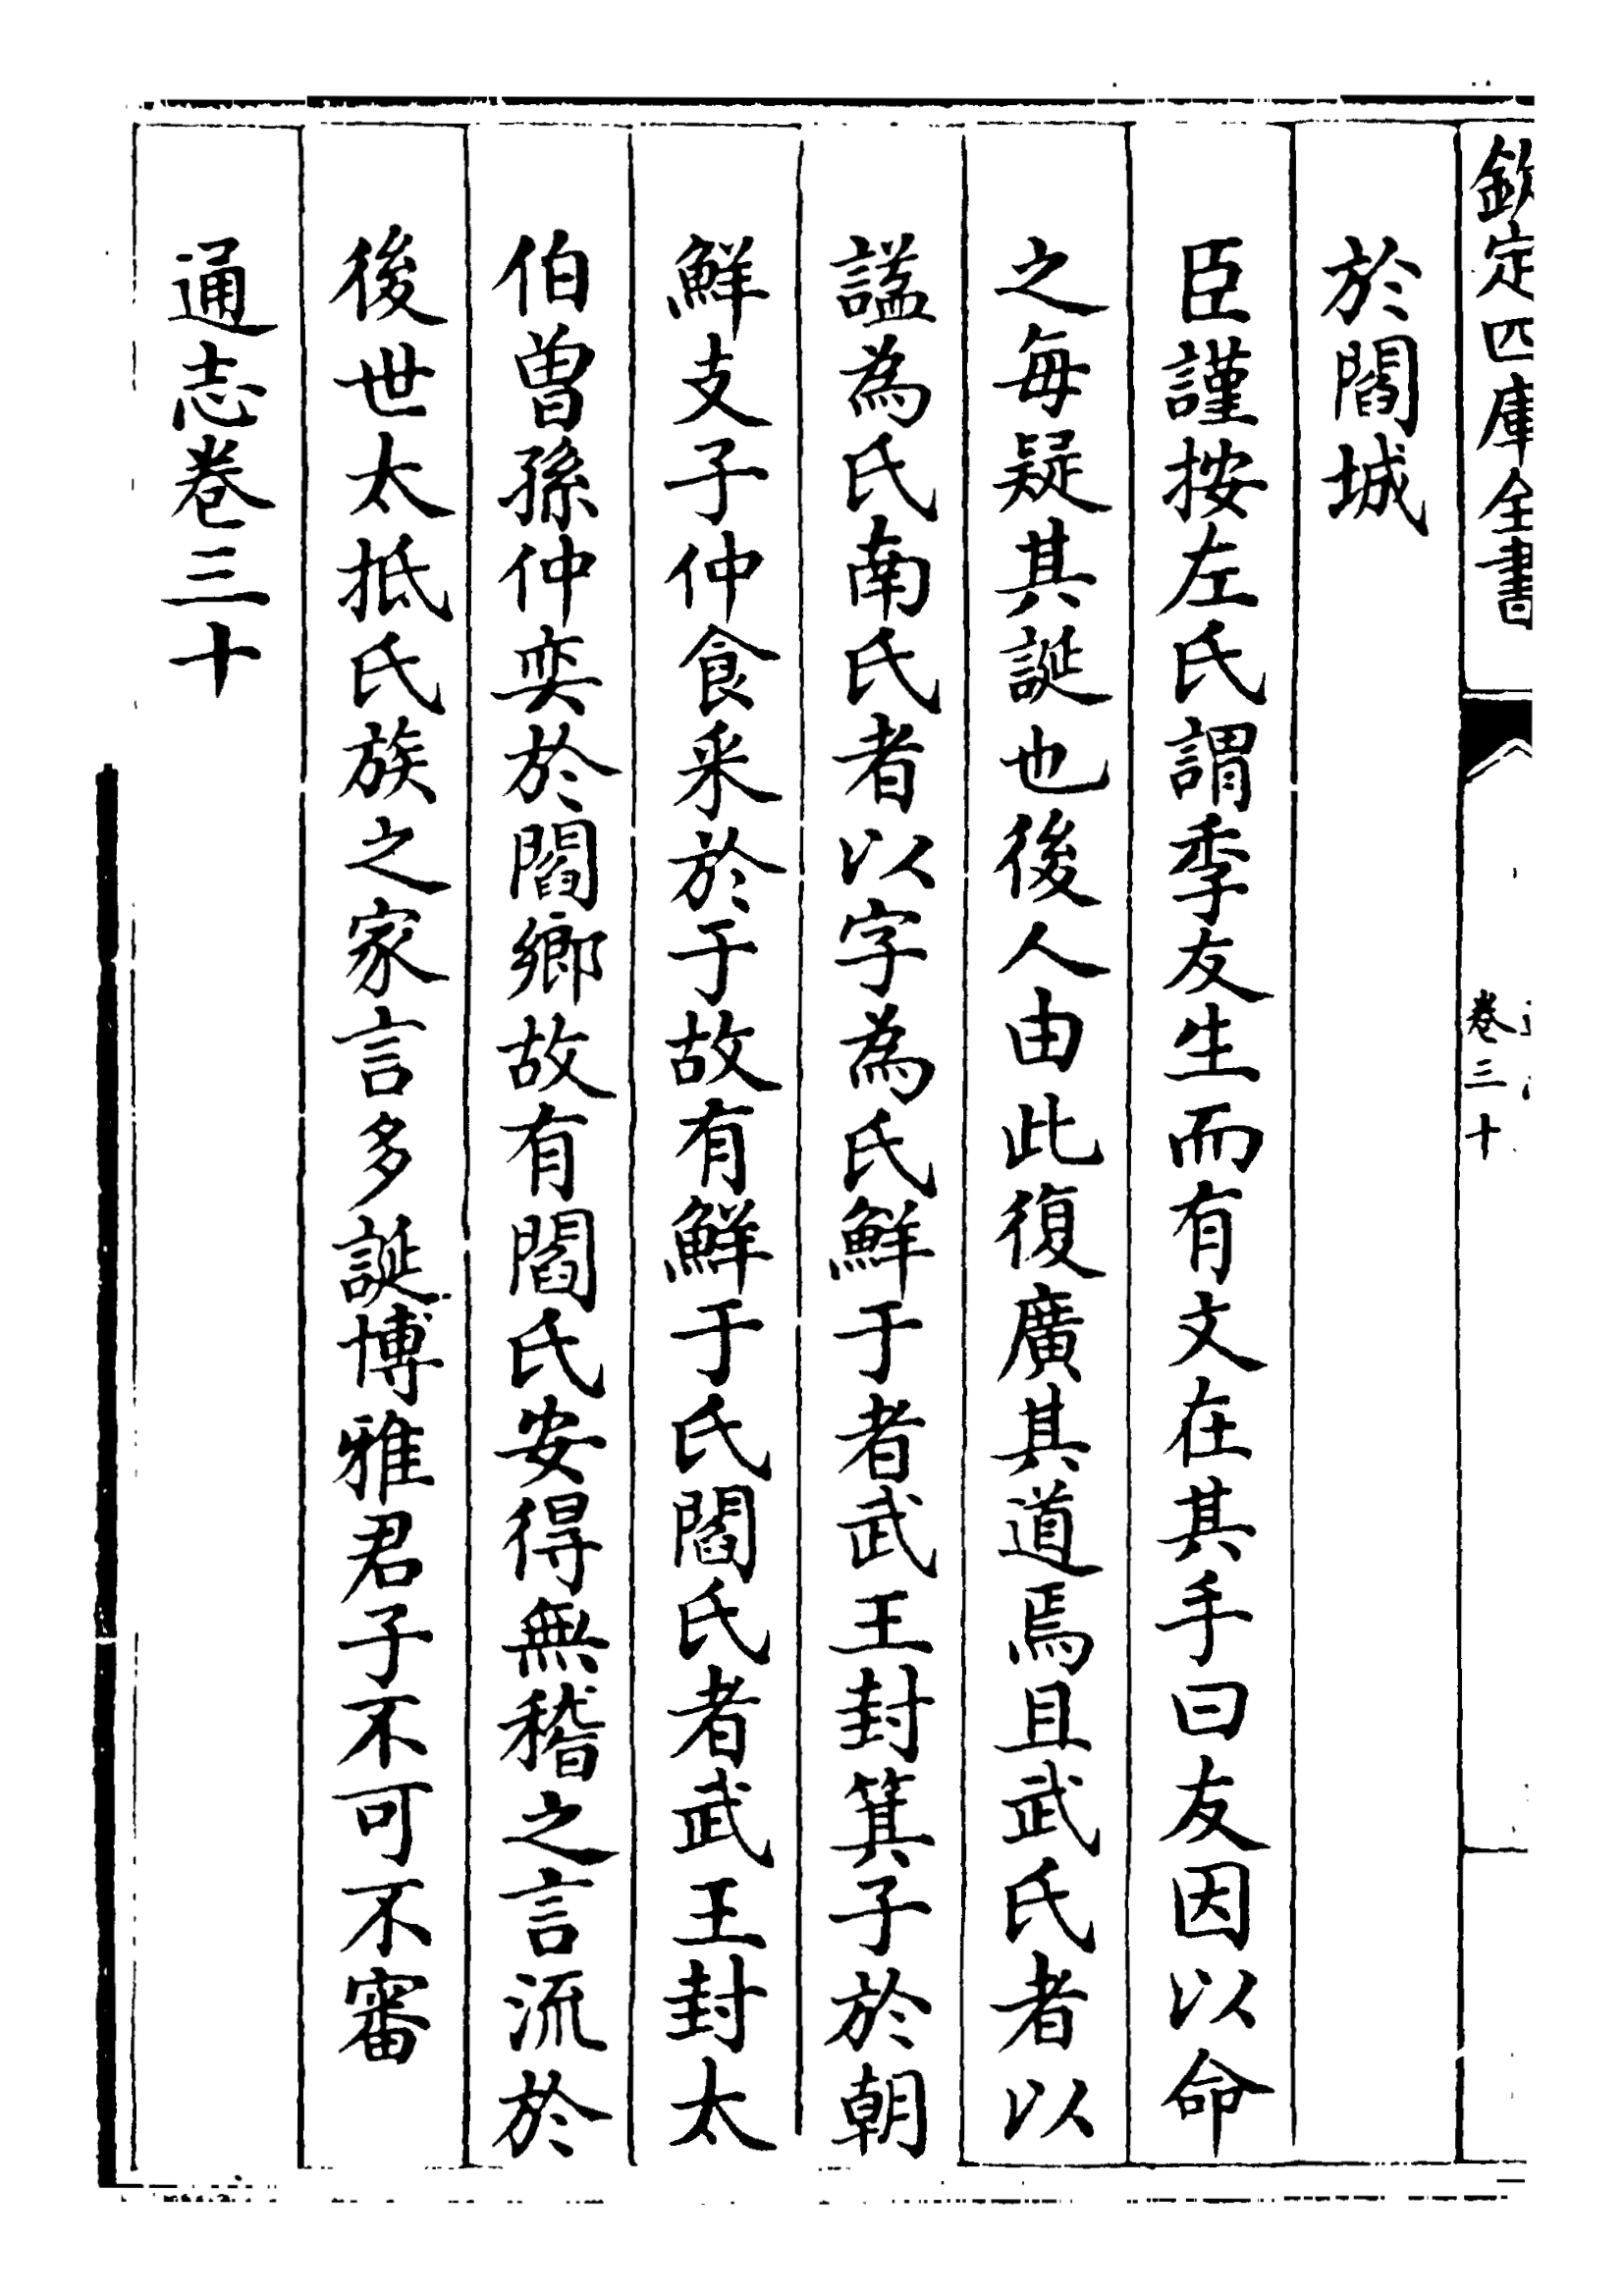 欽定四庫全書
卷三十
於閻城
臣謹按左氏謂季友生而有文在其手曰友因以命
之每疑其誕也後人由此復廣其道焉且武氏者以
諡為氏南氏者以字為氏鮮于者武王封箕子於朝
鮮支子仲食采於于故有鮮于氏閻氏者武王封太
伯曽孫仲奕於閻鄉故有閻氏安得無稽之言流於
後世太抵氏族之家言多誕博雅君子不可不審
通志卷三十